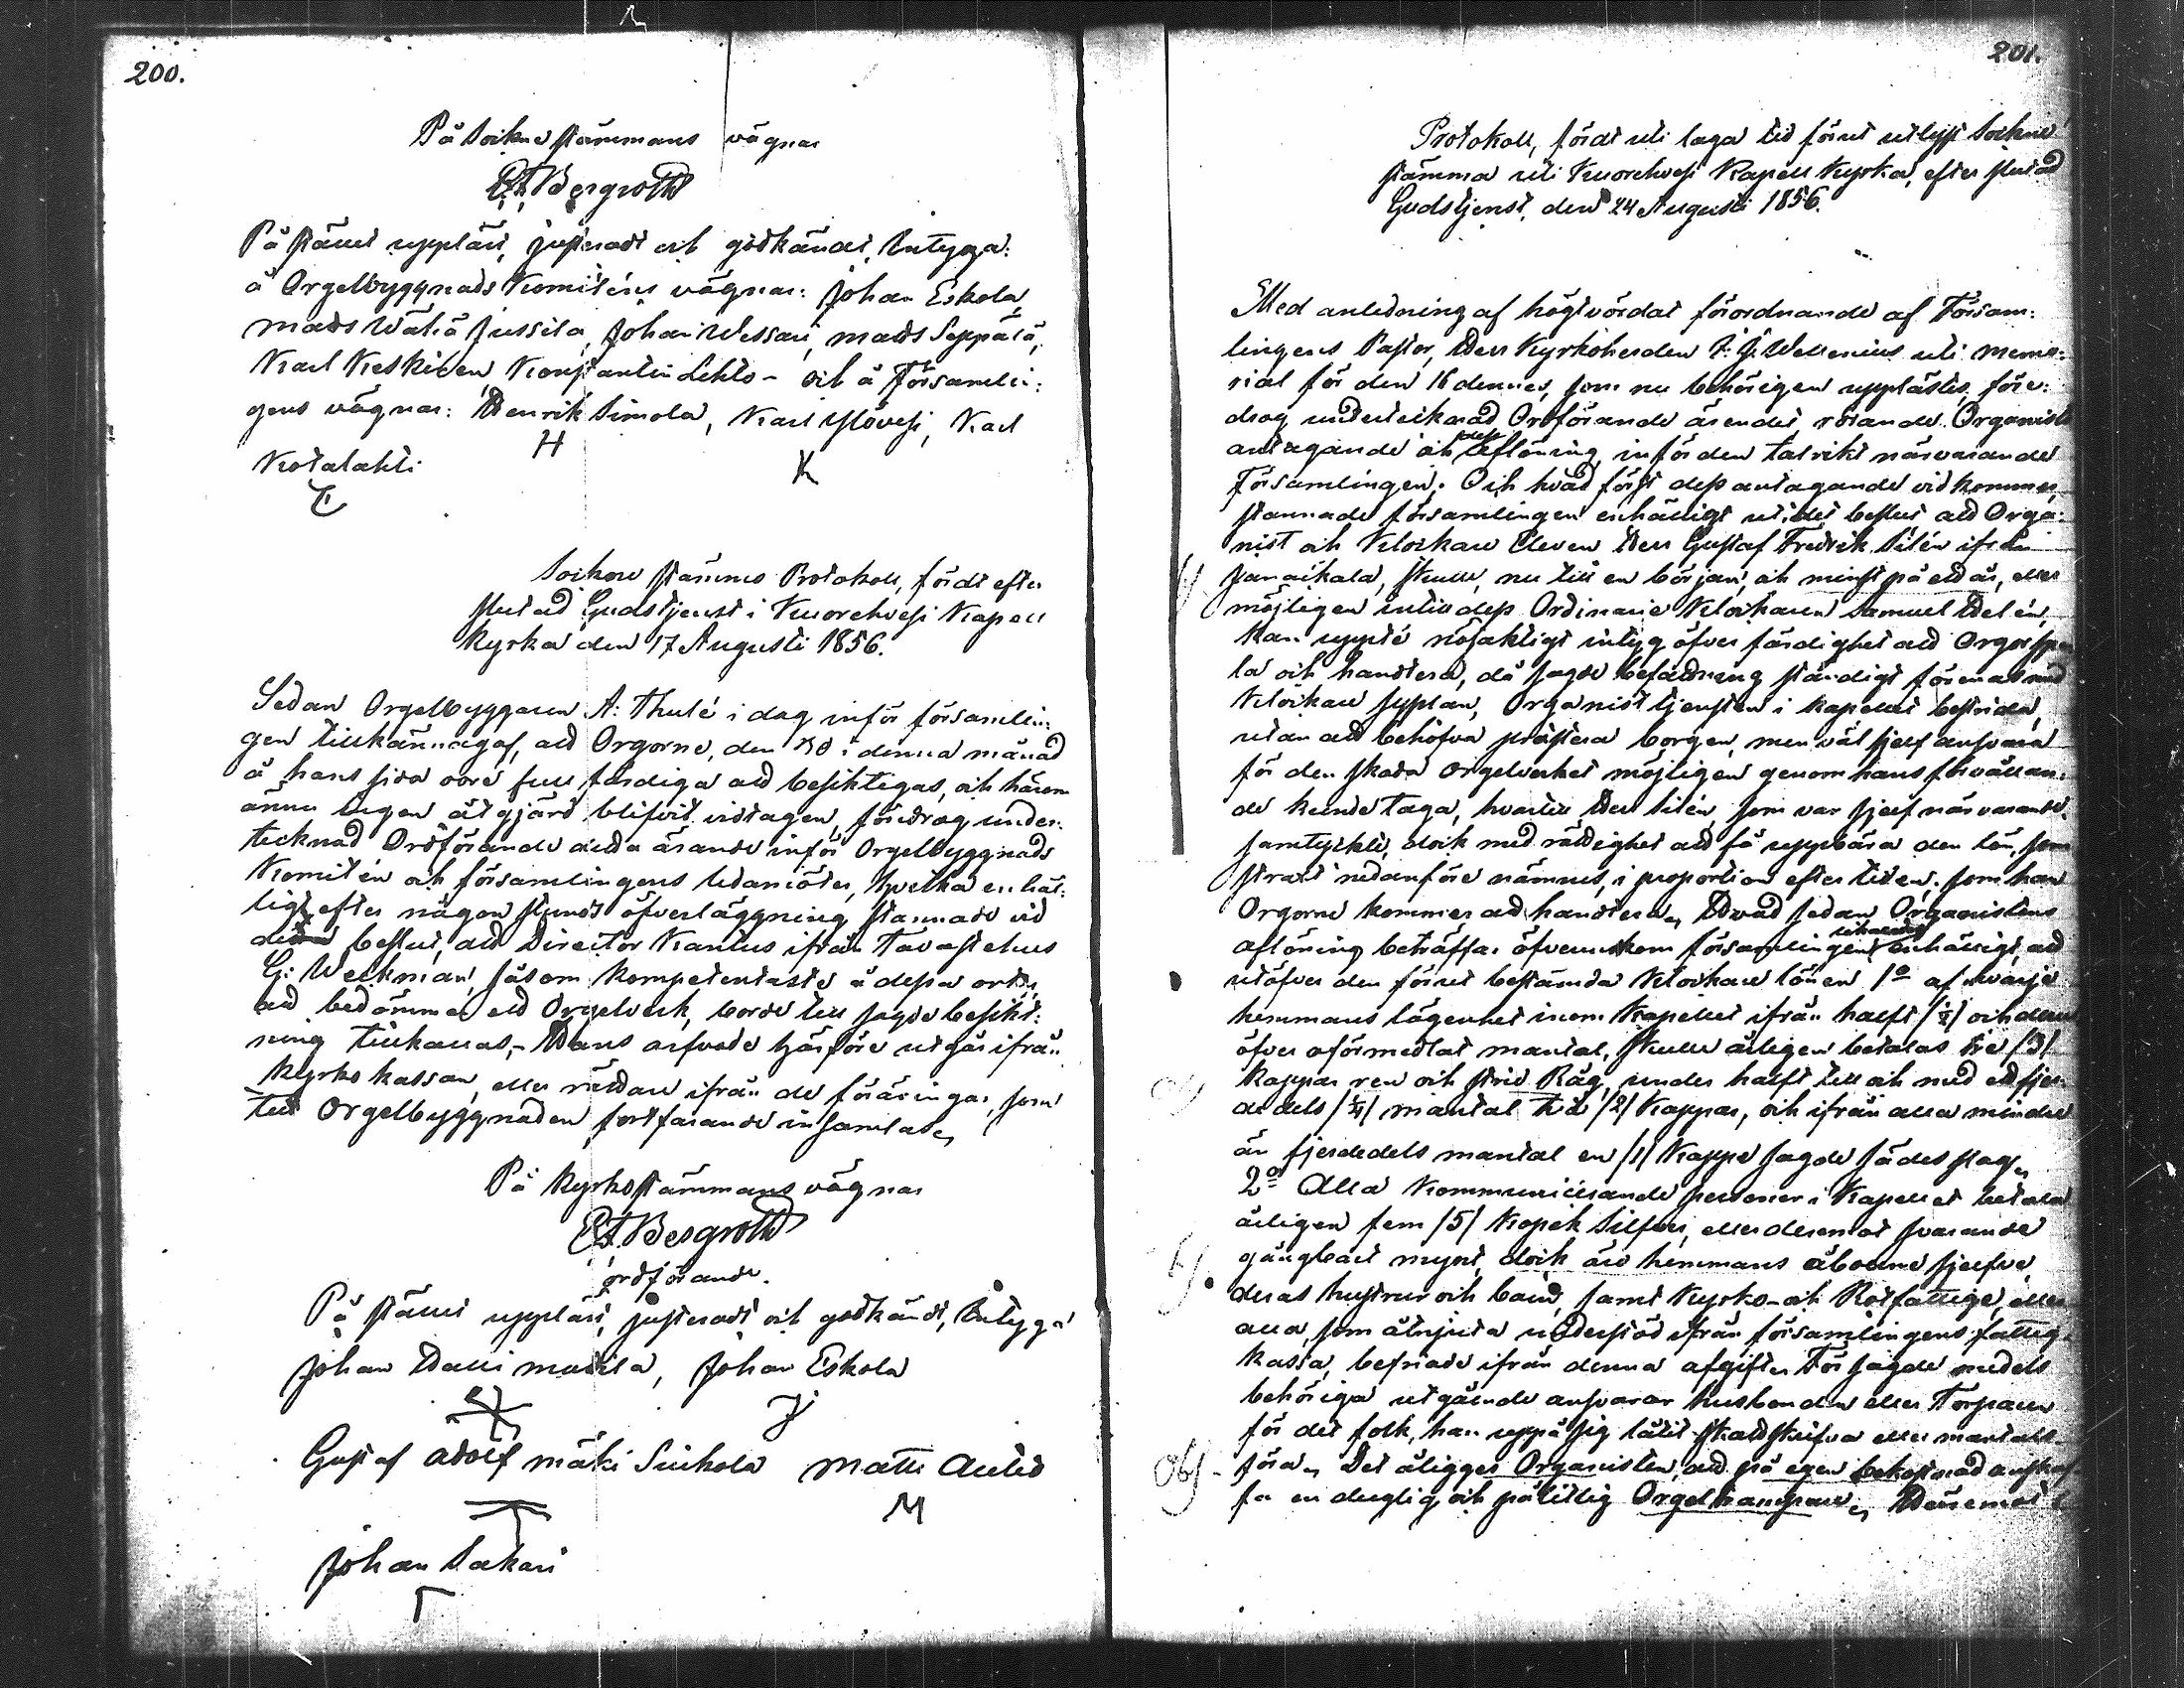 200.
På Sockne stämmans vägnar
E. A. Bergroth
På stället uppläst, justeradt och godkändt, Intyga:
å Orgelbyggnads Komiténs vägnar: Johan Eskola,
Mats Wähä Jussila, Johan Wessari, Mats Seppälä,
Karl Keskinen, Konstantin Lehto – och å Församlin:
gens vägnar: Henrik Simola, Karl Ylövesi, Karl
H K
Kotalahti
Sockne stämmo Protokoll, fördt efter
slutad Gudstjenst i Kuorehvesi Kapell
Kyrka den 17 Augusti 1856.
Sedan Orgelbyggaren A: Thulé i dag inför församlin:
gen tillkännagaf, att Orgorne, den 30 i denna månad
å hans sida vore full färdiga att besiktigas, och härom
ännu ingen åtgjärd blifvit vidtagen, föredrog under:
tecknad Ordförande detta ärande inför Orgelbyggnads
Komitén och församlingens ledamöter, hvilka enhäl:
ligt efter någon stunds öfverläggning stannade vid
det beslut, att Director Kantus ifrån Tavastehus
G: Weckman, såsom kompetentaste å dessa orter,
att bedömma ett Orgelverk, borde till sagde besikt:
ning tillkallas, – Hans arfvode härföre utgår ifrån
Kyrko kassan, eller rättare ifrån de föräringar, som
till Orgelbyggnaden fortfarande insamlas
På Kyrkostämmans vägnar
E. A. Bergroth
ordförande.
På stället uppläst, justeradt och godkändt, Intyga
Johan Halli mattila, Johan Eskola
J
Gustaf Adolf mäki Siukola Matti Anttio
M
Johan Sakari
201.
Protokoll, fördt uti laga tid förut utlyst Sockne
stämma uti Kuorehvesi Kapell Kyrka, efter slutad
Gudstjenst, den 24 Augusti 1856.
Med anledning af högtvördat förordnande af Försam:
lingens Pastor, Herr Kyrkoherden F: J: Wallenius uti memo:
rial för den 16 dennes, som nu behörigen upplästes, före:
drog undertecknad Ordförande ärendet, rörande Organist
antagande och dess aflöning, inför den talrikt närvarande
Församlingen. Och hvad först dess antagande vidkommer,
stannade församlingen enhälligt uti det beslut, att Orga:
nist och Klockare Eleven Herr Gustaf Fredrik Silén ifrån
Janakkala, skulle, nu till en början, och minst på ett år, eller
möjligen intill dess Ordinarie Klockaren Samuel Helén,
kan uppte nöjaktigt intyg öfver färdighet att Orgor spe
la och handtera, då sagde befattning ständigt förenas med
Klockare sysslan, Organist tjensten i kapellet bestrida,
utan att behöfva prestera borgen, men väl sjelf ansvara
för den skada orgelverket möjligen genom hans förvållan:
de kunde taga, hvartill Herr Silén, som var sjelf närvarande,
samtyckte, dock med rättighet att få uppbära den lön, som
straxt nedanföre nämnes, i proportion efter tiden, som han
Orgorne kommer att handtera, Hvad sedan Organistens
aflöning beträffar öfverenskom församlingens enhälligt, att
utöfver den förut bestämda Klockare lönen 1o af hvarje
hemmans lägenhet inom Kapellet ifrån halft /½/ och der
öfver oförmedlat mantal, skulle årligen betalas tre /3/
Kappar ren och strid Råg, under halft till och med ett fjer:
dedels /¼/ mantal två /2/ Kappar, och ifrån alla mindre
än fjerdedels mantal en /1/ Kappe sagde sädes slag
2o Alla Kommunicerande personer i Kapellet betala
årligen fem /5/ Kopek Silfver, eller deremot svarande
gångbart mynt, dock äro hemmans åboerne sjelfve,
deras hustrur och barn, samt Kyrko- och Rotfattige, eller
alla, som åtnjuta understöd ifrån församlingens fattig
kassa, befriade ifrån denna afgift. För sagde medels
behöriga utgående ansvarar husbonden eller Torparen
för det folk, han uppå sig låtit skattskrifva eller mantals-
föra. Det åligger Organisten, att på egen bekostnad anskaf
Obs –
fa en duglig och pålitlig Orgeltrampare. Deremot